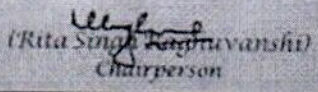 (Rita Singh Raghuvanshi)
Chairperson